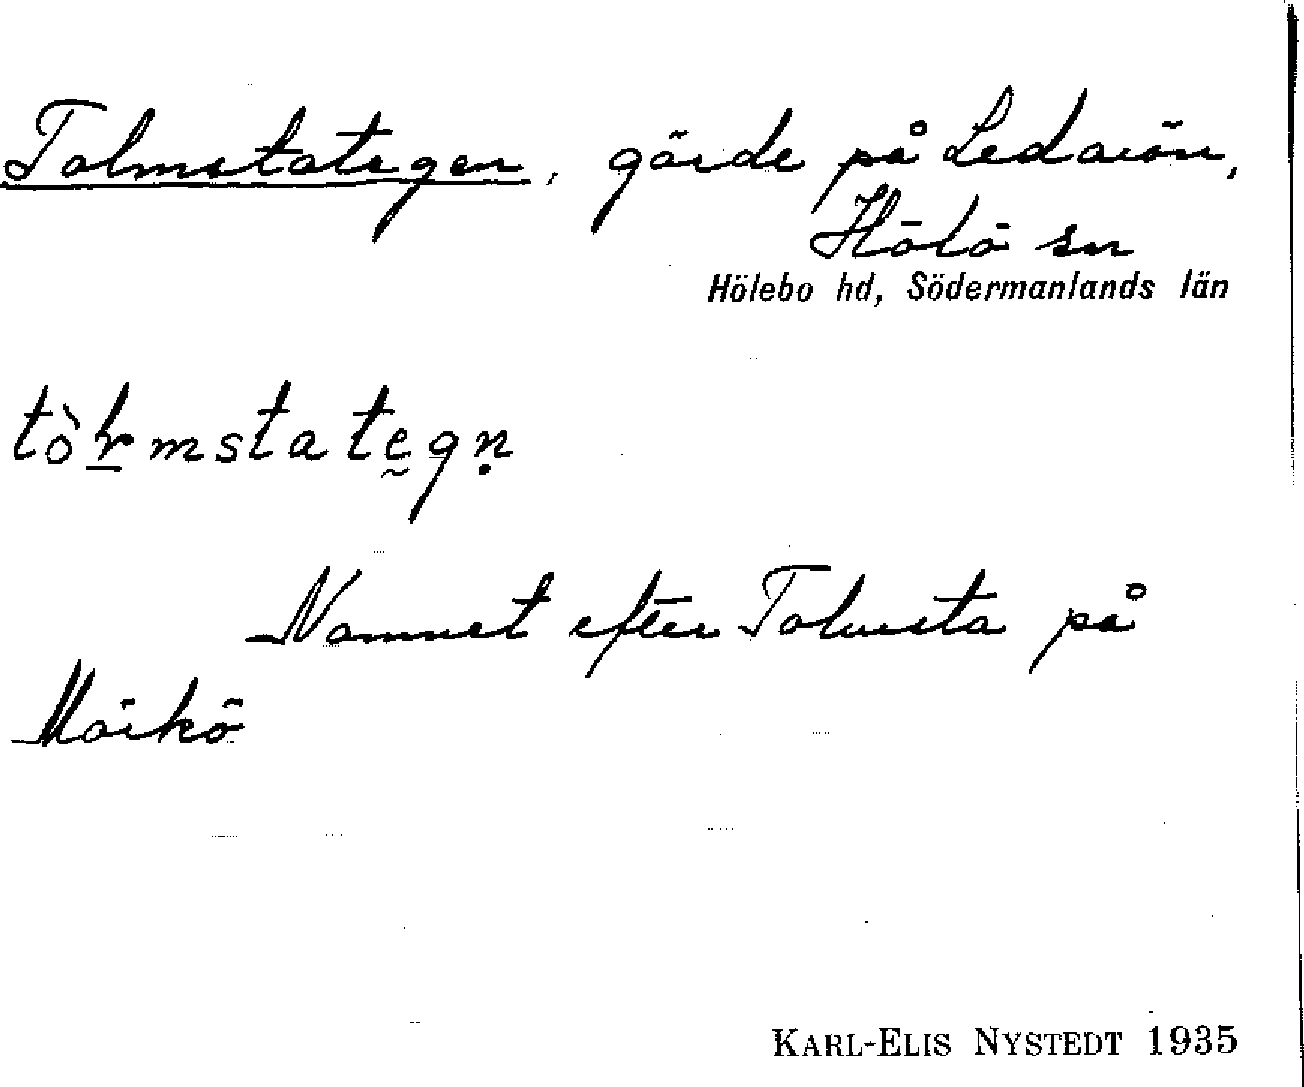 Tolmstategen, gärde på Ledarön,
Hölö sn
Hölebo hd, Södermanlands län
tòl̠mstatḛgṇ
Namnet efter Tolmsta på
Mörkö
KARL-ELIS NYSTEDT 1935